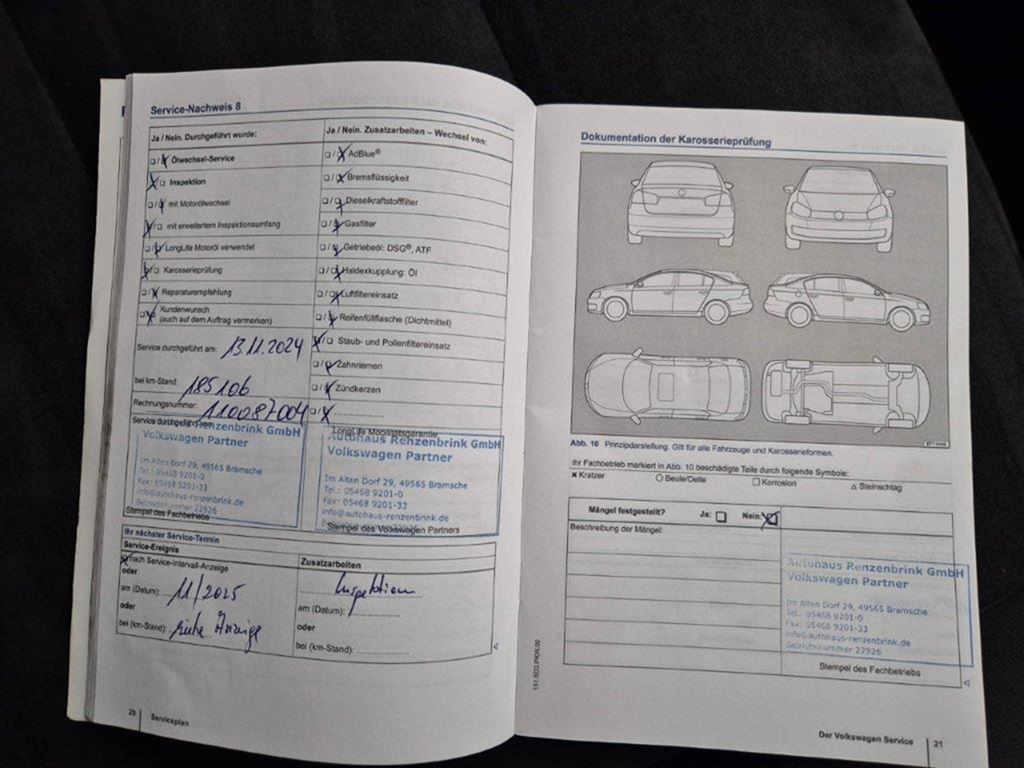 Service-Nachweis 8
Ja / Nein. Durchgeführt wurde:
Ölwechsel-Service
Inspektion
mit Motorölwechsel
mit erweitertem Inspektionsumfang
LongLife Motoröl verwendet
Karosserieprüfung
Reparaturempfehlung
Kundenwunsch
(auch auf dem Auftrag vermerken)
Service durchgeführt am: 13.11.2024
bei km-Stand: 185106
Rechnungsnummer: 110087004
Service durchgeführt von:
Autohaus Renzenbrink GmbH
Volkswagen Partner
Im Alten Dorf 29, 49565 Bramsche
Tel.: 05468 9201-0
Fax: 05468 9201-33
info@autohaus-renzenbrink.de
Betriebsnummer 22926
Stempel des Fachbetriebs
Ja / Nein. Zusatzarbeiten – Wechsel von:
AdBlue®
Bremsflüssigkeit
Dieselkraftstofffilter
Gasfilter
Getriebeöl: DSG®, ATF
Haldexkupplung: Öl
Luftfiltereinsatz
Reifenfüllflasche (Dichtmittel)
Staub- und Pollenfiltereinsatz
Zahnriemen
Zündkerzen
LongLife Mobilitätsgarantie
Autohaus Renzenbrink GmbH
Volkswagen Partner
Im Alten Dorf 29, 49565 Bramsche
Tel.: 05468 9201-0
Fax: 05468 9201-33
info@autohaus-renzenbrink.de
Stempel des Volkswagen Partners
Ihr nächster Service-Termin
Service-Ereignis
nach Service-Intervall-Anzeige
oder
am (Datum): 11/2025
oder
bei (km-Stand): siehe Anzeige
Zusatzarbeiten
Inspektion
am (Datum):
oder
bei (km-Stand):
20 Serviceplan
Dokumentation der Karosserieprüfung
Abb. 10 Prinzipdarstellung: Gilt für alle Fahrzeuge und Karosserieformen.
Ihr Fachbetrieb markiert in Abb. 10 beschädigte Teile durch folgende Symbole:
Kratzer Beule/Delle Korrosion Steinschlag
Mängel festgestellt? Ja: Nein:
Beschreibung der Mängel:
Autohaus Renzenbrink GmbH
Volkswagen Partner
Im Alten Dorf 29, 49565 Bramsche
Tel.: 05468 9201-0
Fax: 05468 9201-33
info@autohaus-renzenbrink.de
Betriebsnummer 22926
Stempel des Fachbetriebs
Der Volkswagen Service 21